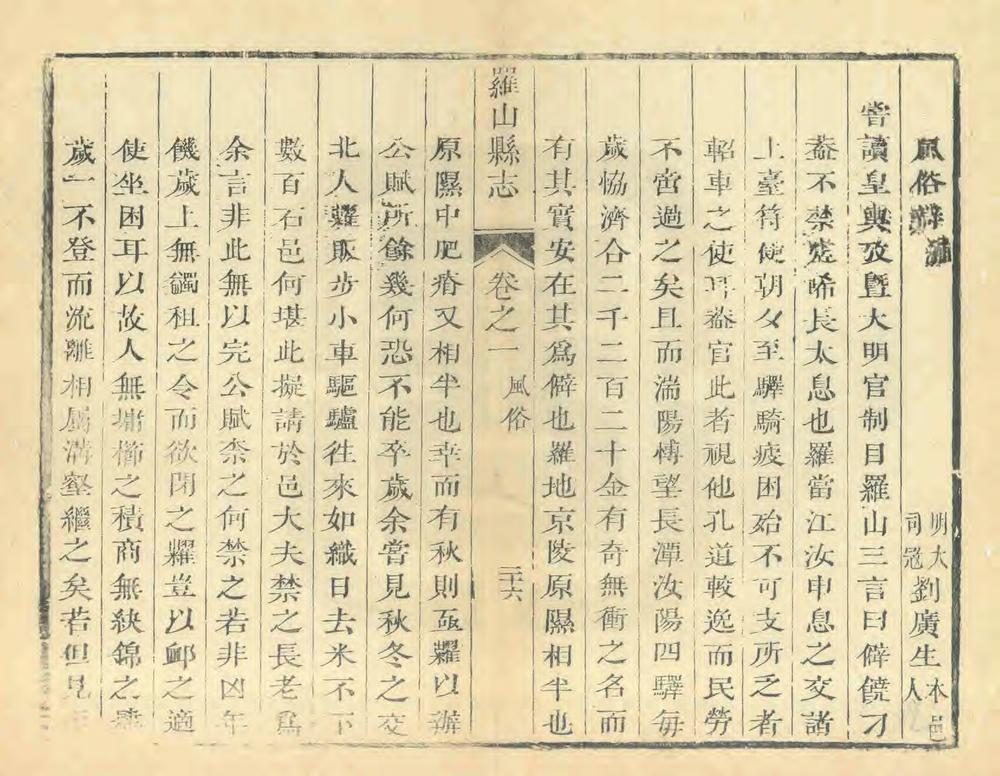 風俗辨 明大司冦劉廣生本邑人
嘗讀皇輿攷暨大明官制目羅山三言曰僻饒刁
葢不禁唏長太息也羅當江汝申息之交諸
上臺符使朝夕至驛騎疲困殆不可支所乏者
軺車之使耳葢官此者視他孔道較逸而民勞
不啻過之矣且而湍陽愽望長潭汝陽四驛每
歲恊濟合二千二百二十金有奇無衝之名而
有其實安在其爲僻也羅地京陵原隰相半也
羅山縣志 卷之一 風俗 三十六
原隰中肥瘠又相半也幸而有秋則亟糶以辦
公賦所餘幾何恐不能卒歲余嘗見秋冬之交
北人糴販步小車驅驢徃來如織日去米不下
數百石邑何堪此擬請於邑大夫禁之長老爲
余言非此無以完公賦柰之何禁之若非凶年
饑歲上無蠲租之令而欲閉之糶豈以䘏之適
使坐困耳以故人無墉櫛之積商無紈錦之肆
歲一不登而流離相屬溝壑繼之矣若但見